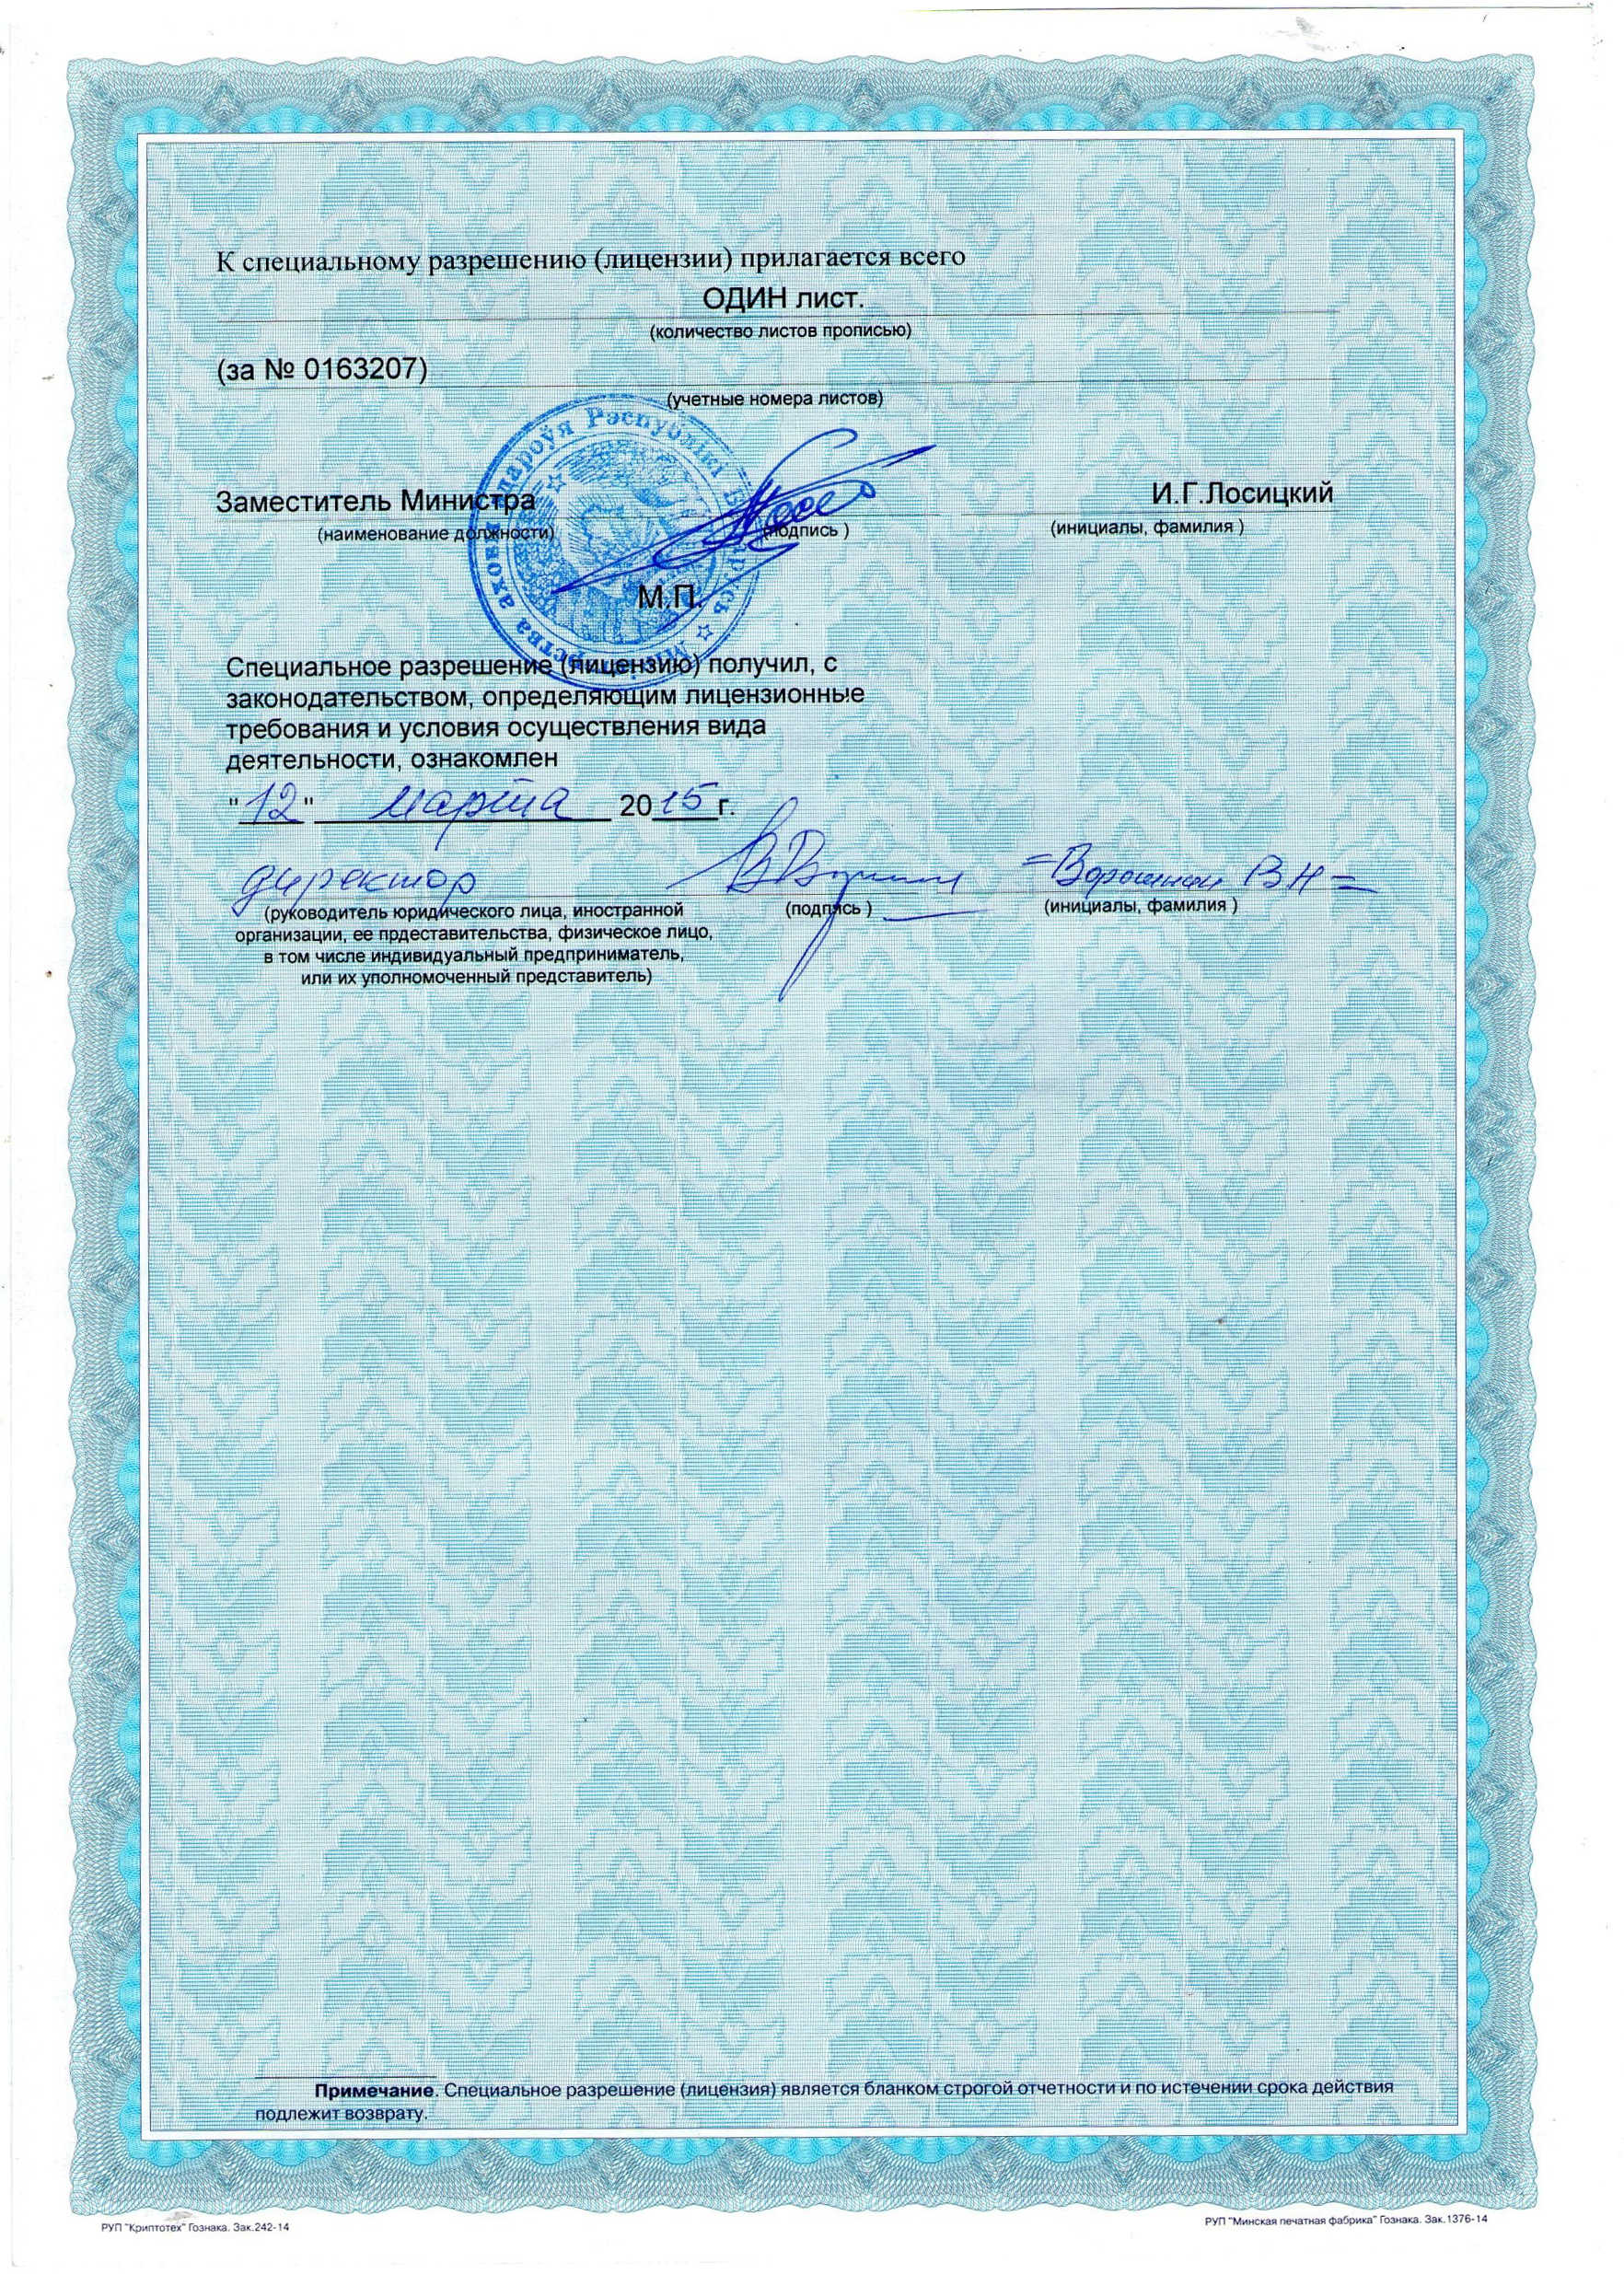 К специальному разрешению (лицензии) прилагается всего
ОДИН лист.
(количество листов прописью)
(за № 0163207)
(учетные номера листов)
Заместитель Министра И.Г.Лосицкий
(наименование должности) (подпись ) (инициалы, фамилия )
М.П.
Специальное разрешение (лицензию) получил, с
законодательством, определяющим лицензионные
требования и условия осуществления вида
деятельности, ознакомлен
"12" марта 2015 г.
директор В Н
(руководитель юридического лица, иностранной (подпись ) (инициалы, фамилия )
организации, ее прдеставительства, физическое лицо,
в том числе индивидуальный предприниматель,
или их уполномоченный представитель)
Примечание. Специальное разрешение (лицензия) является бланком строгой отчетности и по истечении срока действия
подлежит возврату.
РУП "Криптотех" Гознака. Зак.242-14 РУП "Минская печатная фабрика" Гознака. Зак.1376-14